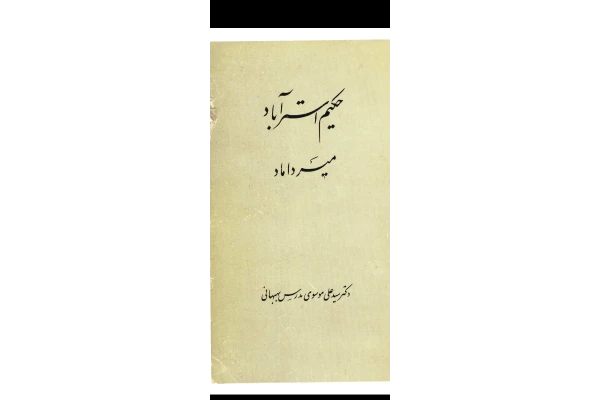 حکیم استرآباد
میرداماد
دکتر سید علی موسوی مدرس بهبهانی